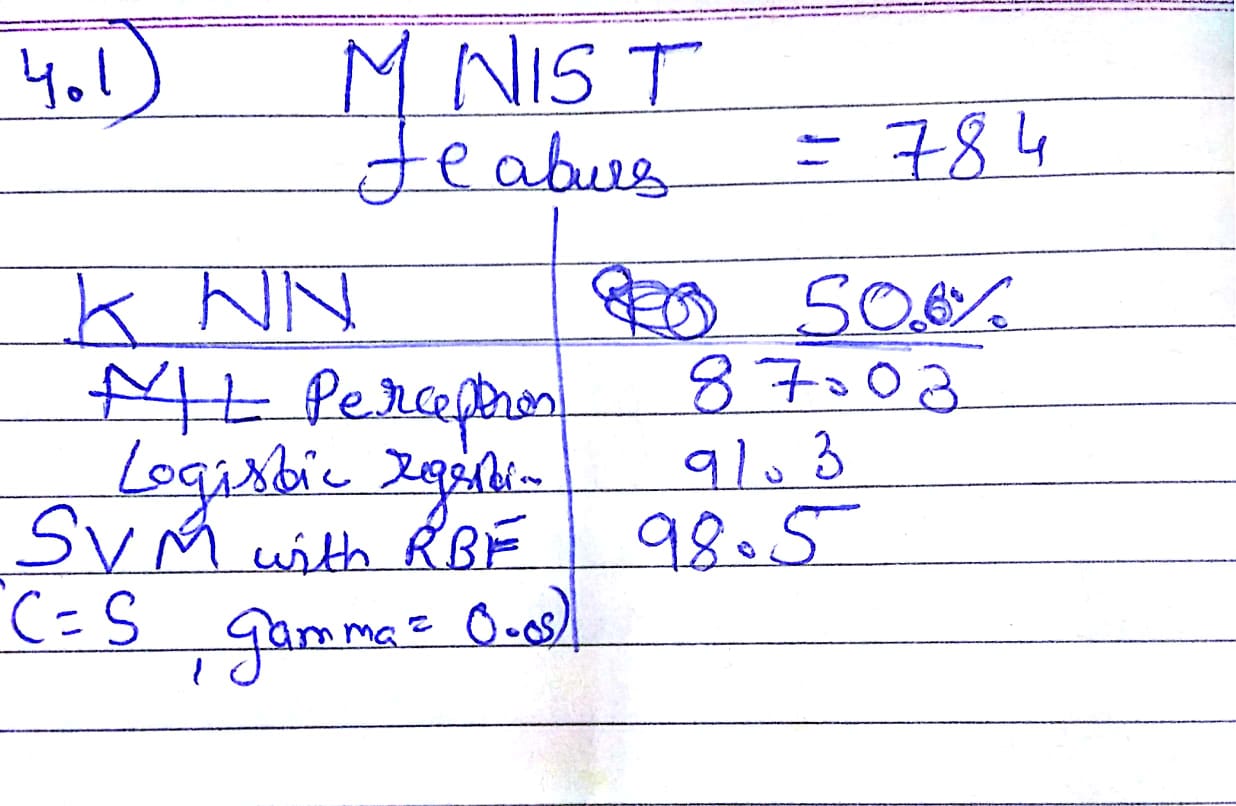 4.1) MNIST
features = 784
KNN 50.6%
Perceptron 87.03
Logistic regression 91.3
SVM with RBF 98.5
(C=5, gamma = 0.05)